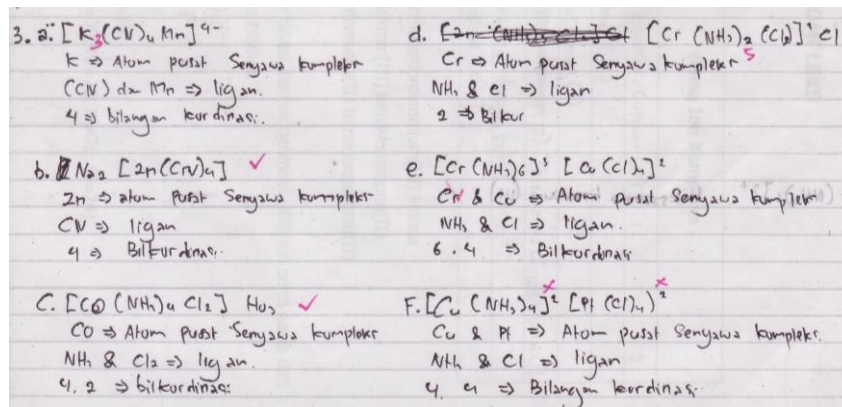 3. a. [K3(CN)4 Mn]4-
K ⇒ Atom pusat Senyawa kompleks
(CN) dan Mn ⇒ ligan.
4 ⇒ bilangan kordinasi.
b. Na2 [Zn(CN)4] ✓
Zn ⇒ atom pusat Senyawa kompleks
CN ⇒ ligan
4 ⇒ Bilkordinasi.
C. [CO (NH3)4 Cl2] ✓
CO ⇒ Atom pusat Senyawa kompleks
NH3 & Cl2 ⇒ ligan.
4. 2 ⇒ bilkordinasi
d. [Cr (NH3)2 (Cl2)]' Cl
5
Cr ⇒ Atom pusat Senyawa kompleks
NH3 & Cl ⇒ ligan
2 ⇒ Bilkor
e. [Cr (NH3)6]3 [Cu (Cl)4]2
Cr & Cu ⇒ Atom pusat Senyawa kompleks
NH3 & Cl ⇒ ligan.
6. 4 ⇒ Bilkordinasi
F. [Cu (NH3)4]2 [Pt (Cl)4)2
Cu & Pt ⇒ Atom pusat Senyawa kompleks.
NH3 & Cl ⇒ ligan
4. 4 ⇒ Bilangan kordinasi.